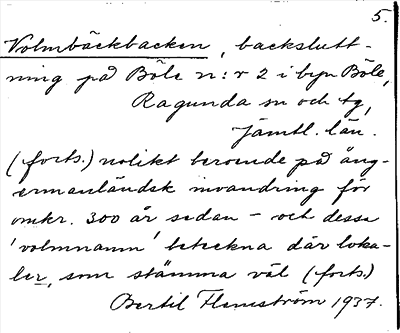 5.
Volmbäckbacken, backslutt-
ning på Böle n:r 2 i byn Böle,
Ragunda sn och tg,
Jämtl. län.
(forts.) nolikt beroende på ång-
ermanländsk invandring för
omkr. 300 år sedan - och dessa
'volmnamn' beteckna där loka-
ler, som stämma väl (forts.)
Bertil Flemström 1937.